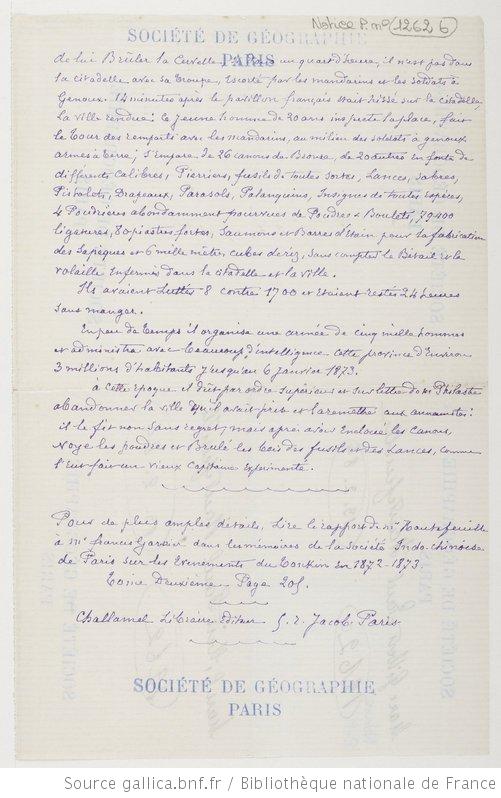 Notice P. no 1262 b
SOCIÉTÉ DE GÉOGRAPHIE
PARIS
de lui Brûler la Cervelle si dans un quart d'heure, il n'est pas dans
la citadelle avec sa Troupe, Escorté par les mandarins et les soldats à
Genoux. 14 minutes après le pavillon français était hissé sur la citadelle,
la ville rendue: le jeune homme de 20 ans inspecte la place, fait
le Tour des remparts avec les mandarins, au milieu des soldats à genoux
armes à terre; s'Empare de 26 canons de Bronze, de 20 autres en fonte de
différents calibres, Pierriers, fusils de toutes sortes, Lances, sabres,
Pistolets, Drapeaux, Parasols, Palanquins, Insignes de toutes Espèces,
4 Poudrières abondamment pourvues de Poudres & Boulets, 79400
ligatures, 80 piastres fortes, Saumons et Barres d'Etain pour la fabrication
des Sapèques et 6 mille mètres cubes de riz, sans compter le Bétail et la
volaille Enfermés dans la citadelle et la ville.
Ils avaient Luttés 8 contre 1700 et étaient restés 24 heures
sans manger.
En peu de Temps il organise une armée de cinq mille hommes
et administra avec Beaucoup d'intelligence cette province d'Environ
3 millions d'habitants jusqu'au 6 janvier 1873.
à cette époque il dût par ordre supérieur et sur lettre de Mr Philastre
abandonner la ville qu'il avait pris et la remettre aux annamites:
il le fit non sans regret; mais après avoir Encloué les Canons,
Noyé les poudres et Brulé les Bois des fusils et des Lances, comme
l'Eut fait un Vieux Capitaine Expérimenté.
Pour de plus amples détails, Lire le rapport de Mr Hautefeuille
à Mr Francis Garnier dans les mémoires de la Société Indo-chinoise
de Paris sur les Evenements du Tonkin en 1872-1873.
Tome Deuxième - Page 205.
Challamel Libraire Editeur 5. r. Jacob. Paris
SOCIÉTÉ DE GÉOGRAPHIE
PARIS
Source gallica.bnf.fr / Bibliothèque nationale de France